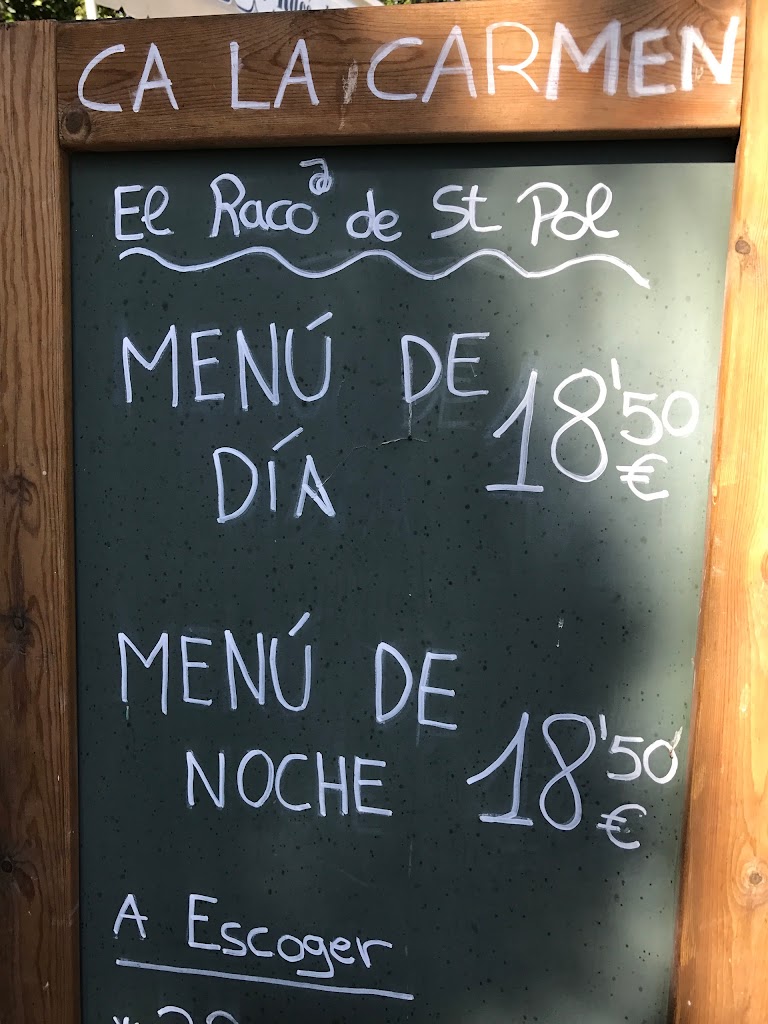 CA LA CARMEN
El Racó de St Pol
MENÚ DE
DÍA
18'50
€
MENÚ DE
NOCHE
18'50
€
A Escoger